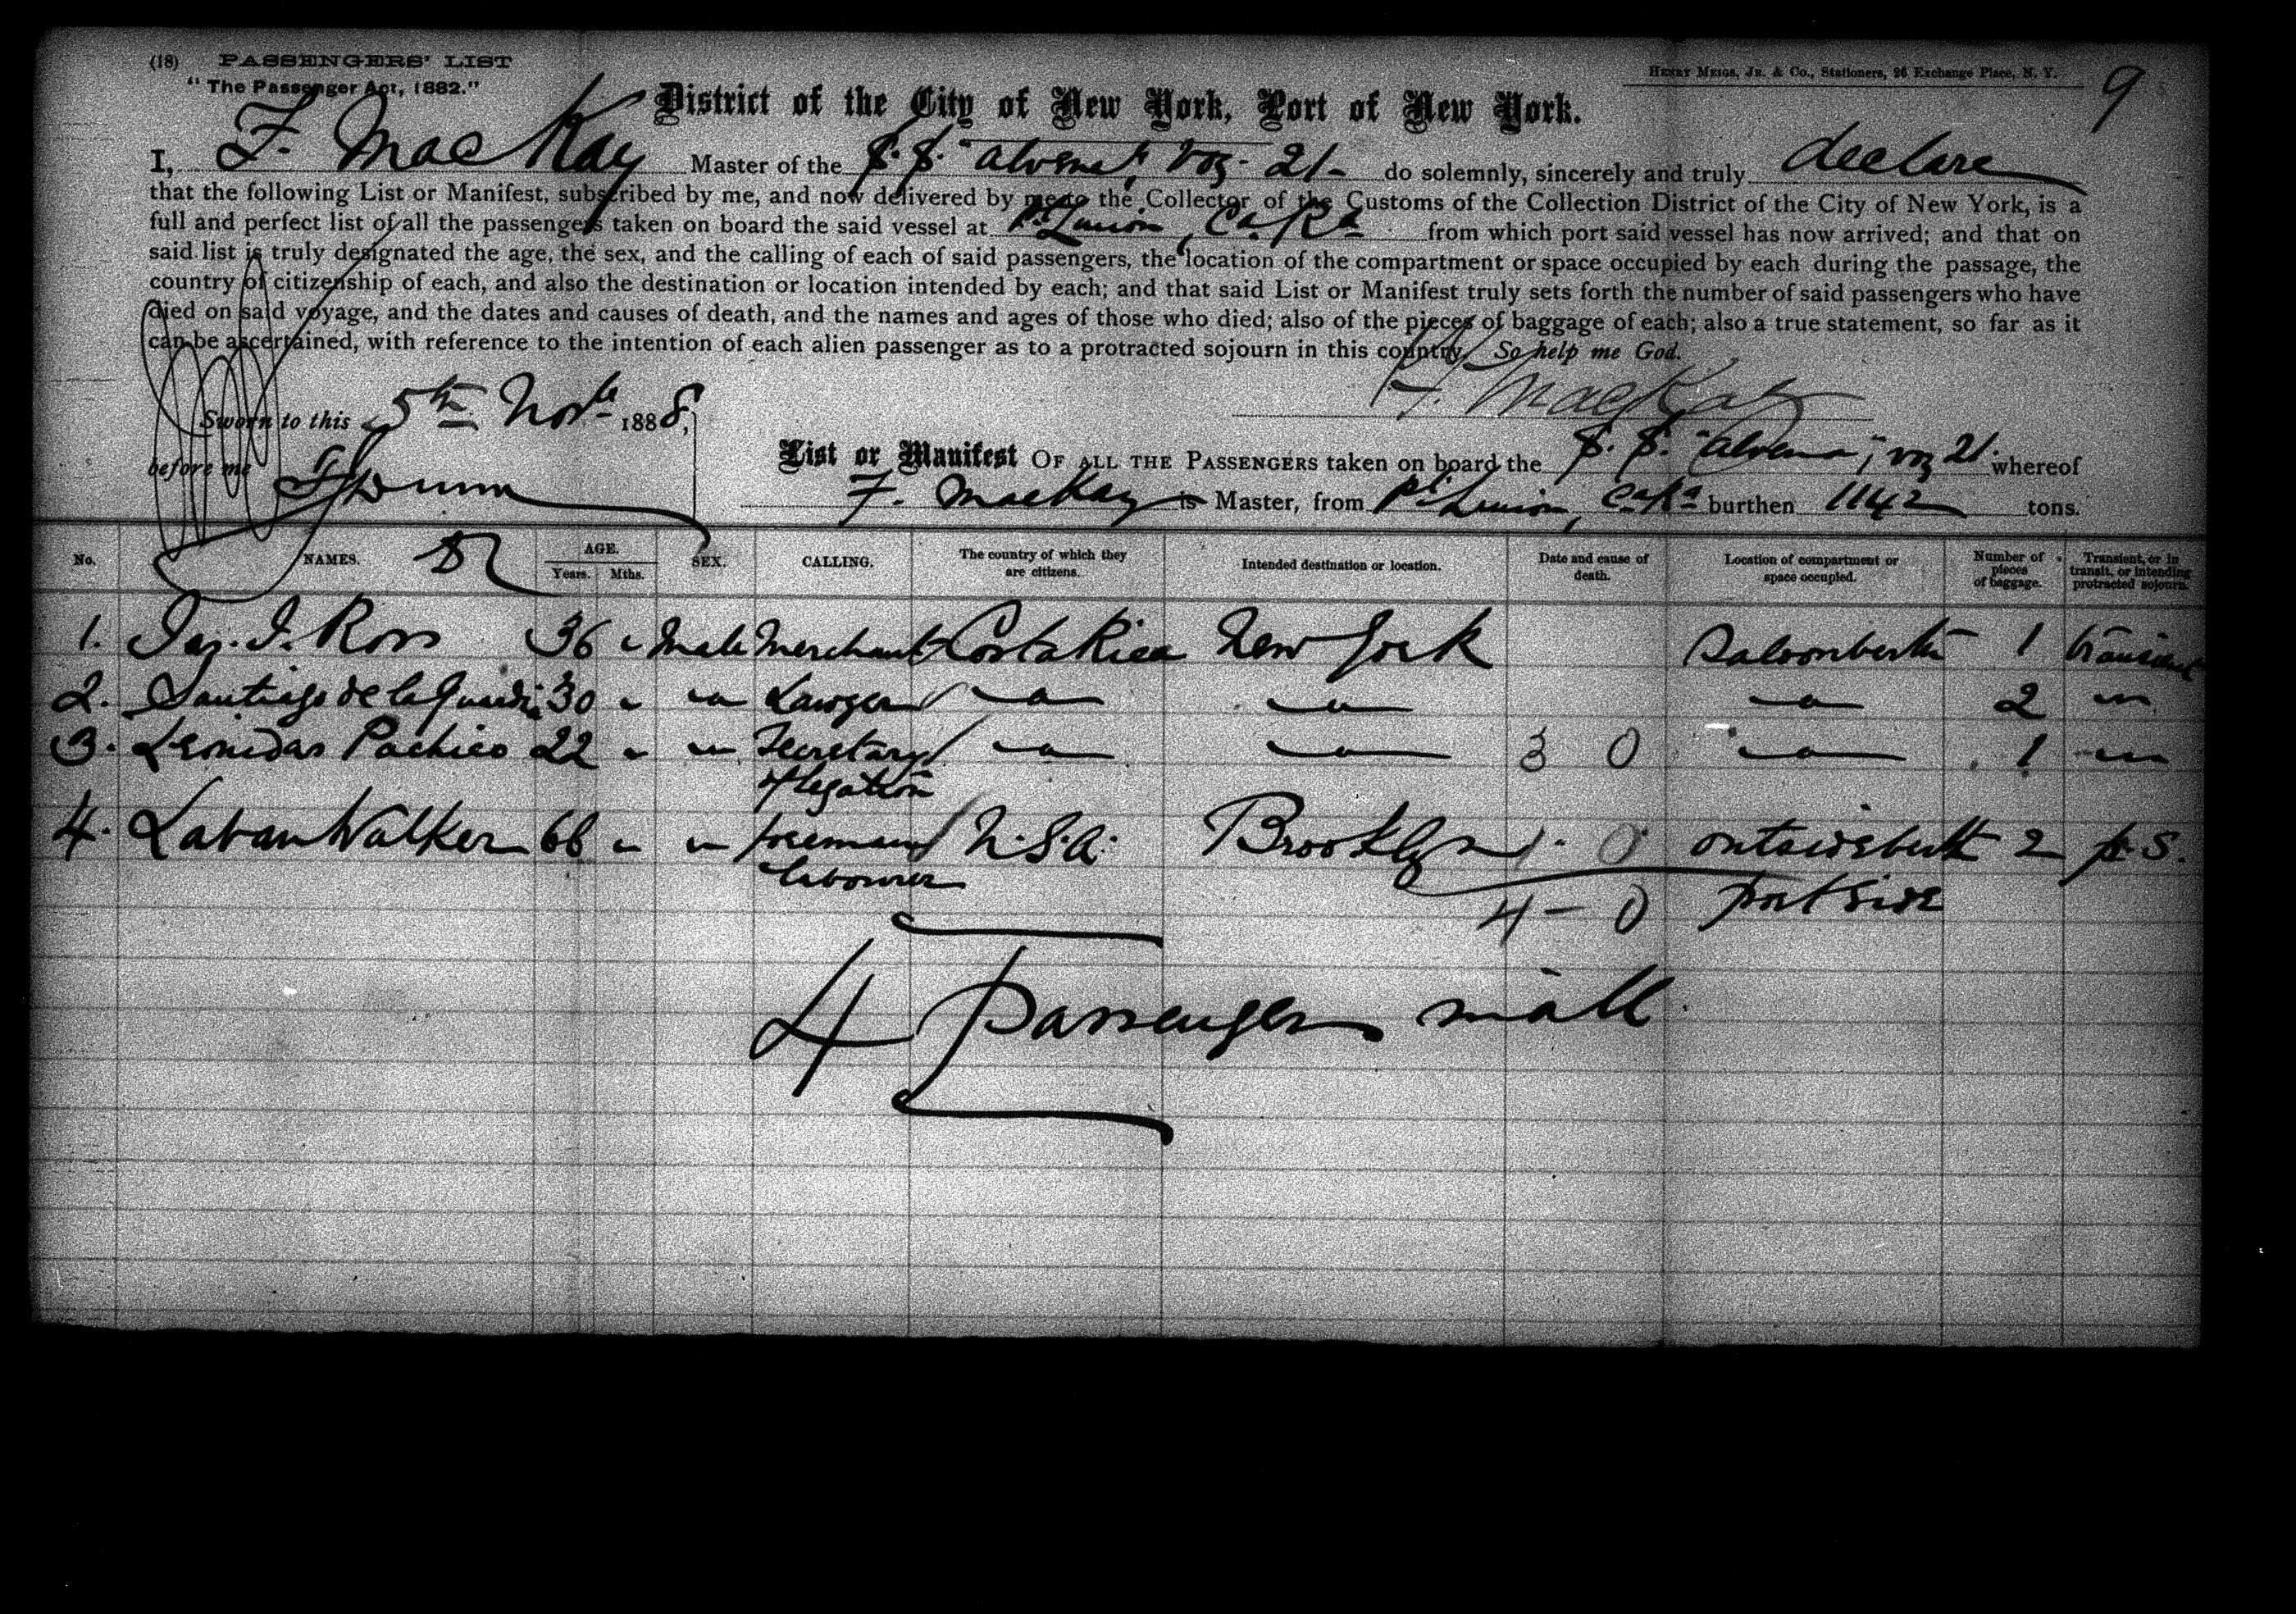 (18) PASSENGERS' LIST
"The Passenger Act, 1882."
HENRY MEIGS, JR. & CO., Stationers, 26 Exchange Place, N. Y.
9
District of the City of New York, Port of New York.
I, F. MacKay Master of the S.S. "Alvena", Voy. 21- do solemnly, sincerely and truly declare
that the following List or Manifest, subscribed by me, and now delivered by me to the Collector of the Customs of the Collection District of the City of New York, is a
full and perfect list of all the passengers taken on board the said vessel at Pt Limon, Ca Ra from which port said vessel has now arrived; and that on
said list is truly designated the age, the sex, and the calling of each of said passengers, the location of the compartment or space occupied by each during the passage, the
country of citizenship of each, and also the destination or location intended by each; and that said List or Manifest truly sets forth the number of said passengers who have
died on said voyage, and the dates and causes of death, and the names and ages of those who died; also of the pieces of baggage of each; also a true statement, so far as it
can be ascertained, with reference to the intention of each alien passenger as to a protracted sojourn in this country. So help me God.
F. MacKay
Sworn to this 5th Novbr 1888,
before me
List or Manifest OF ALL THE PASSENGERS taken on board the S.S. "Alvena", voy 21. whereof
F. MacKay is Master, from Pt Limon, Ca Ra burthen 1142 tons.
No. NAMES. AGE. Years. Mths. SEX. CALLING. The country of which they are citizens. Intended destination or location. Date and cause of death. Location of compartment or space occupied. Number of pieces of baggage. Transient, or in transit, or intending protracted sojourn.
1. Jas. I. Ross 36 " Male Merchant Costa Rica New York Saloonberth 1 transient
2. Santiago de la Guardia 30 " " Lawyer " " " 2 "
3. Leonidas Pacheco 22 " " Secretary " " 3 0 " 1 "
of legation
4. Laban Walker 66 " " foreman U.S.A. Brooklyn 1. 0 outsideberth 2 p.S.
labourer
4 - 0 portside
4 Passengers in all.